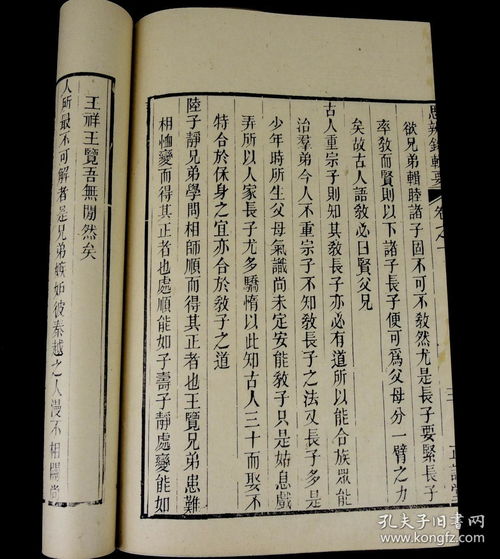 思辨錄輯要
卷之
三
正誼堂
欲兄弟輯睦諸子固不可不敎然尤是長子要緊長子
率敎而賢則以下諸子長子便可爲父母分一臂之力
矣故古人語敎必曰賢父兄
古人重宗子則知其敎長子亦必有道所以能合族眾能
治羣弟今人不重宗子不知敎長子之法又長子多是
少年時所生父母氣識尚未定安能敎子只是姑息戲
弄所以人家長子尤多驕惰以此知古人三十而娶不
特合於保身之宜亦合於敎子之道
陸子靜兄弟學問相師順而得其正者也王覽兄弟患難
相恤變而得其正者也處順能如子壽子靜處變能如
王祥王覽吾無閒然矣
人所最不可解者是兄弟嫉妒彼秦越之人漫不相關尚
孔夫子旧书网
www.kongfz.com